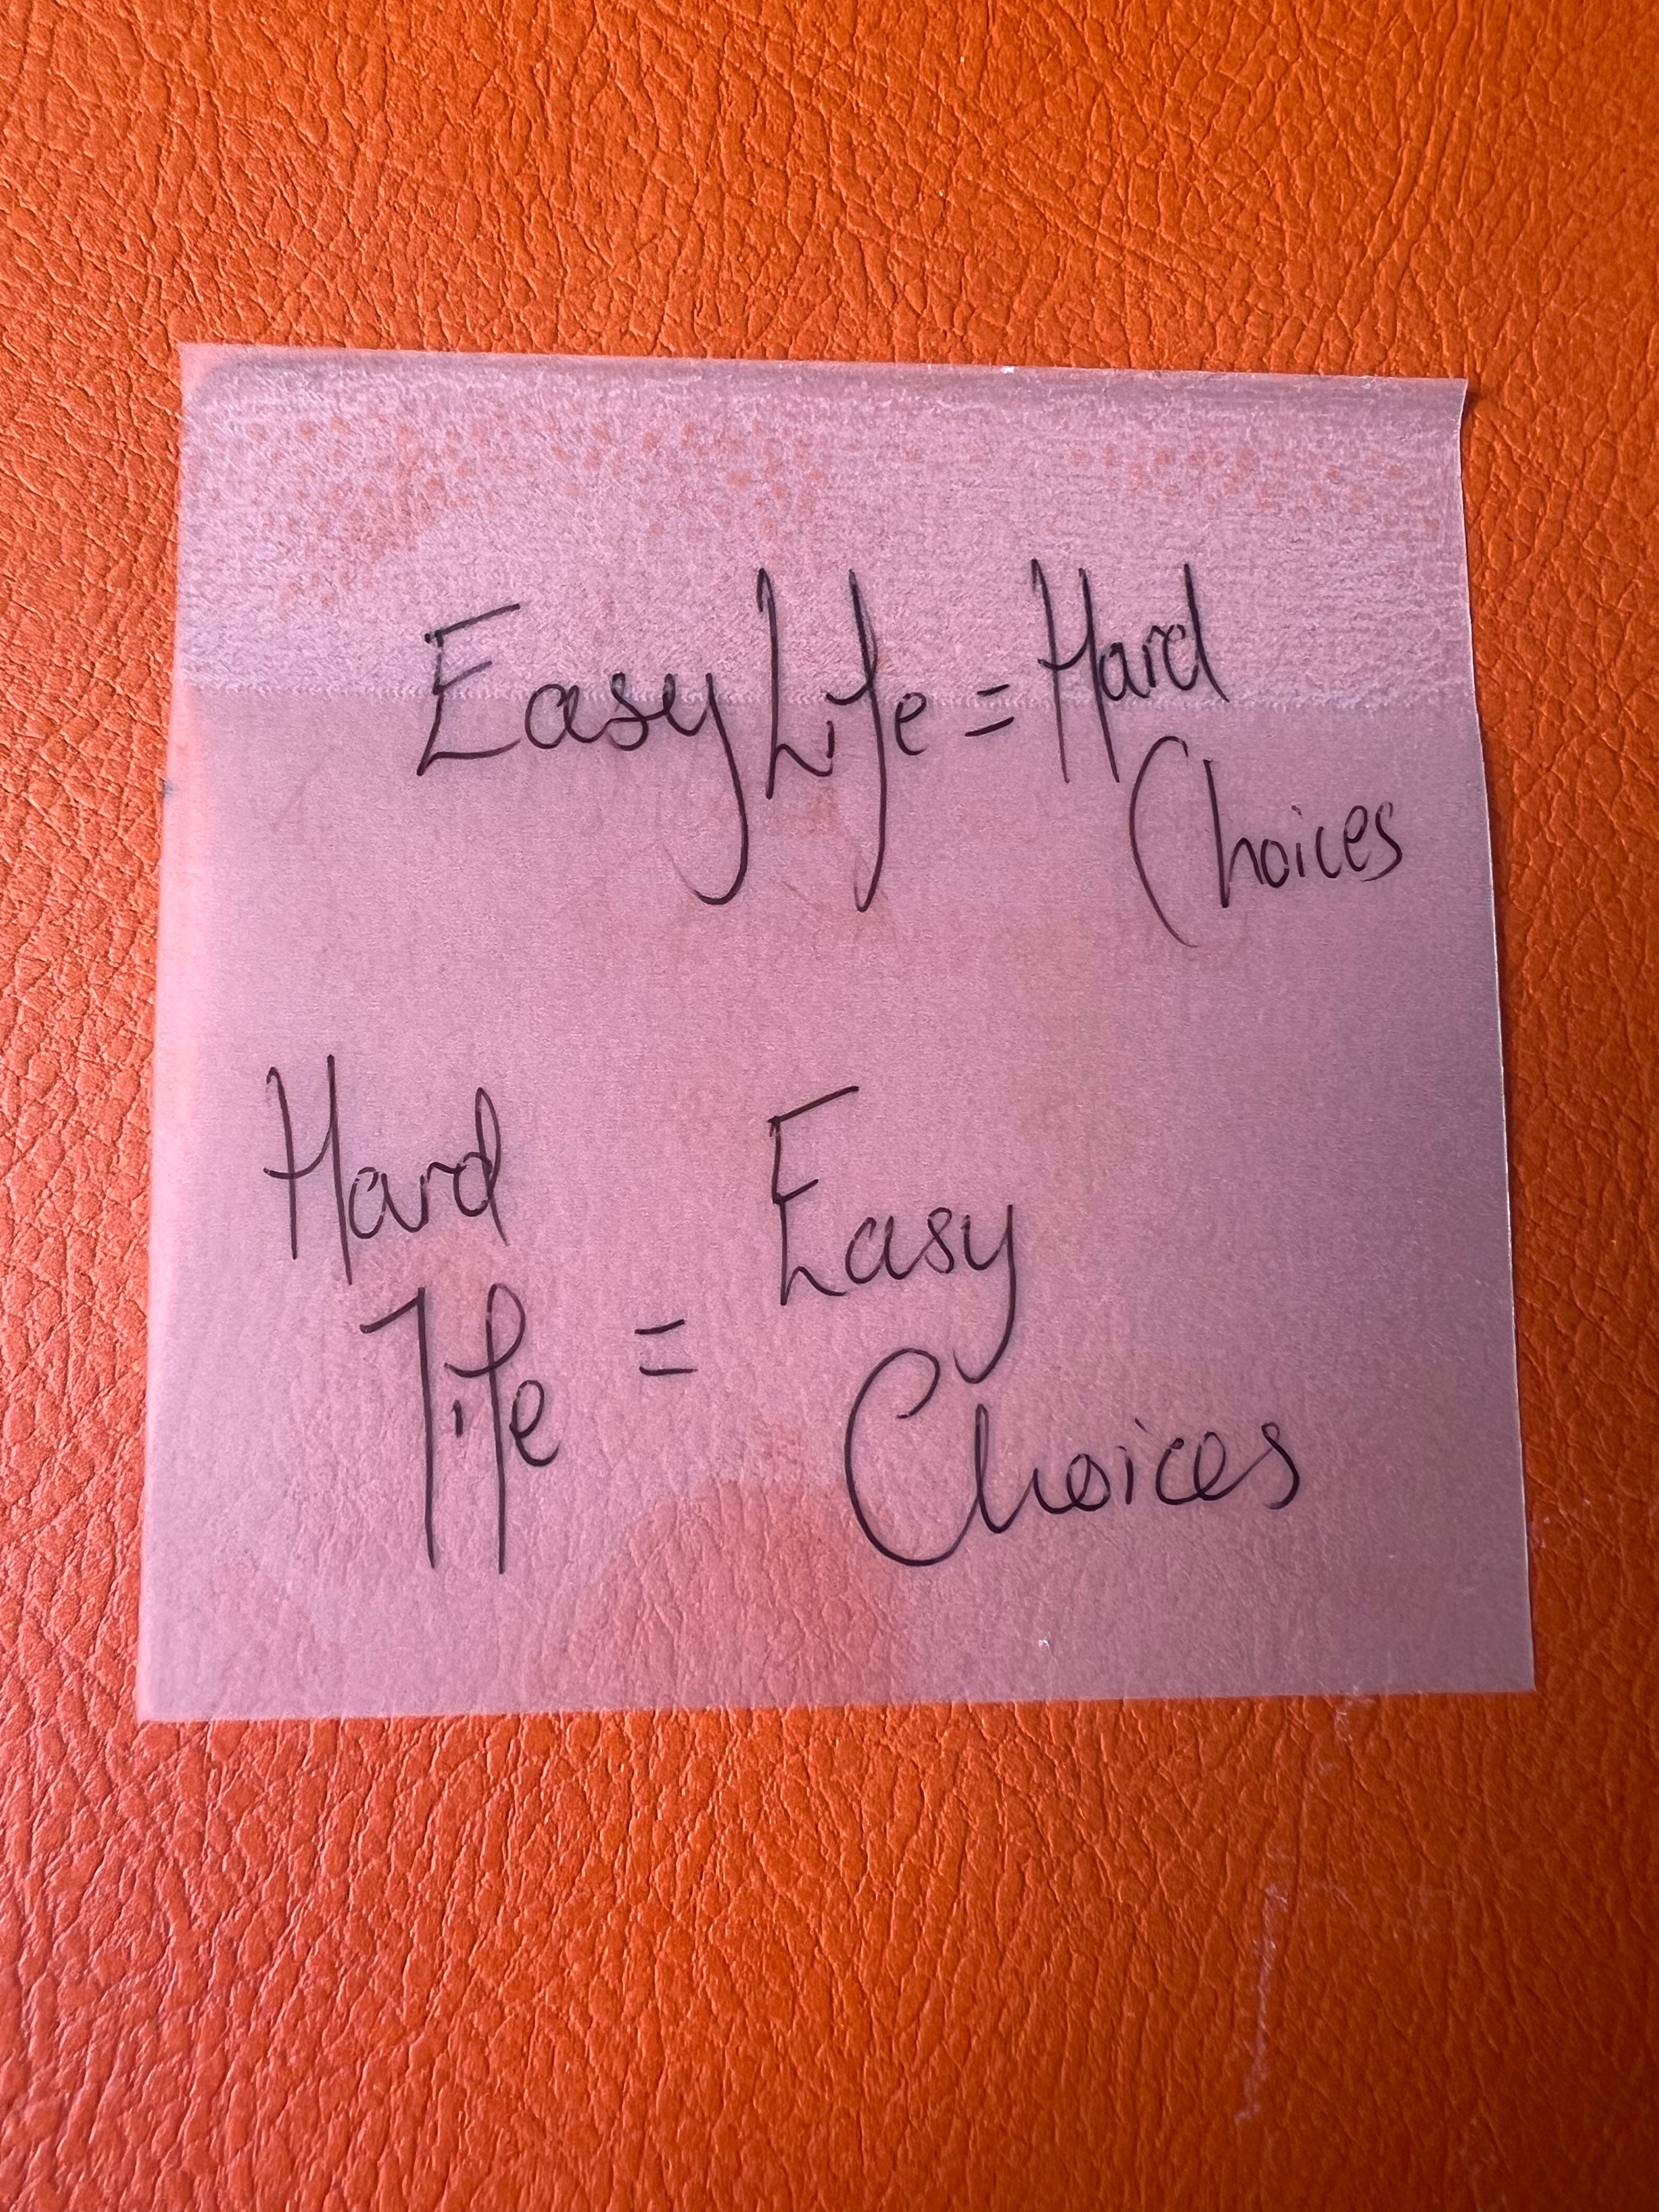 Easy Life = Hard
Choices
Hard
Life = Easy
Choices